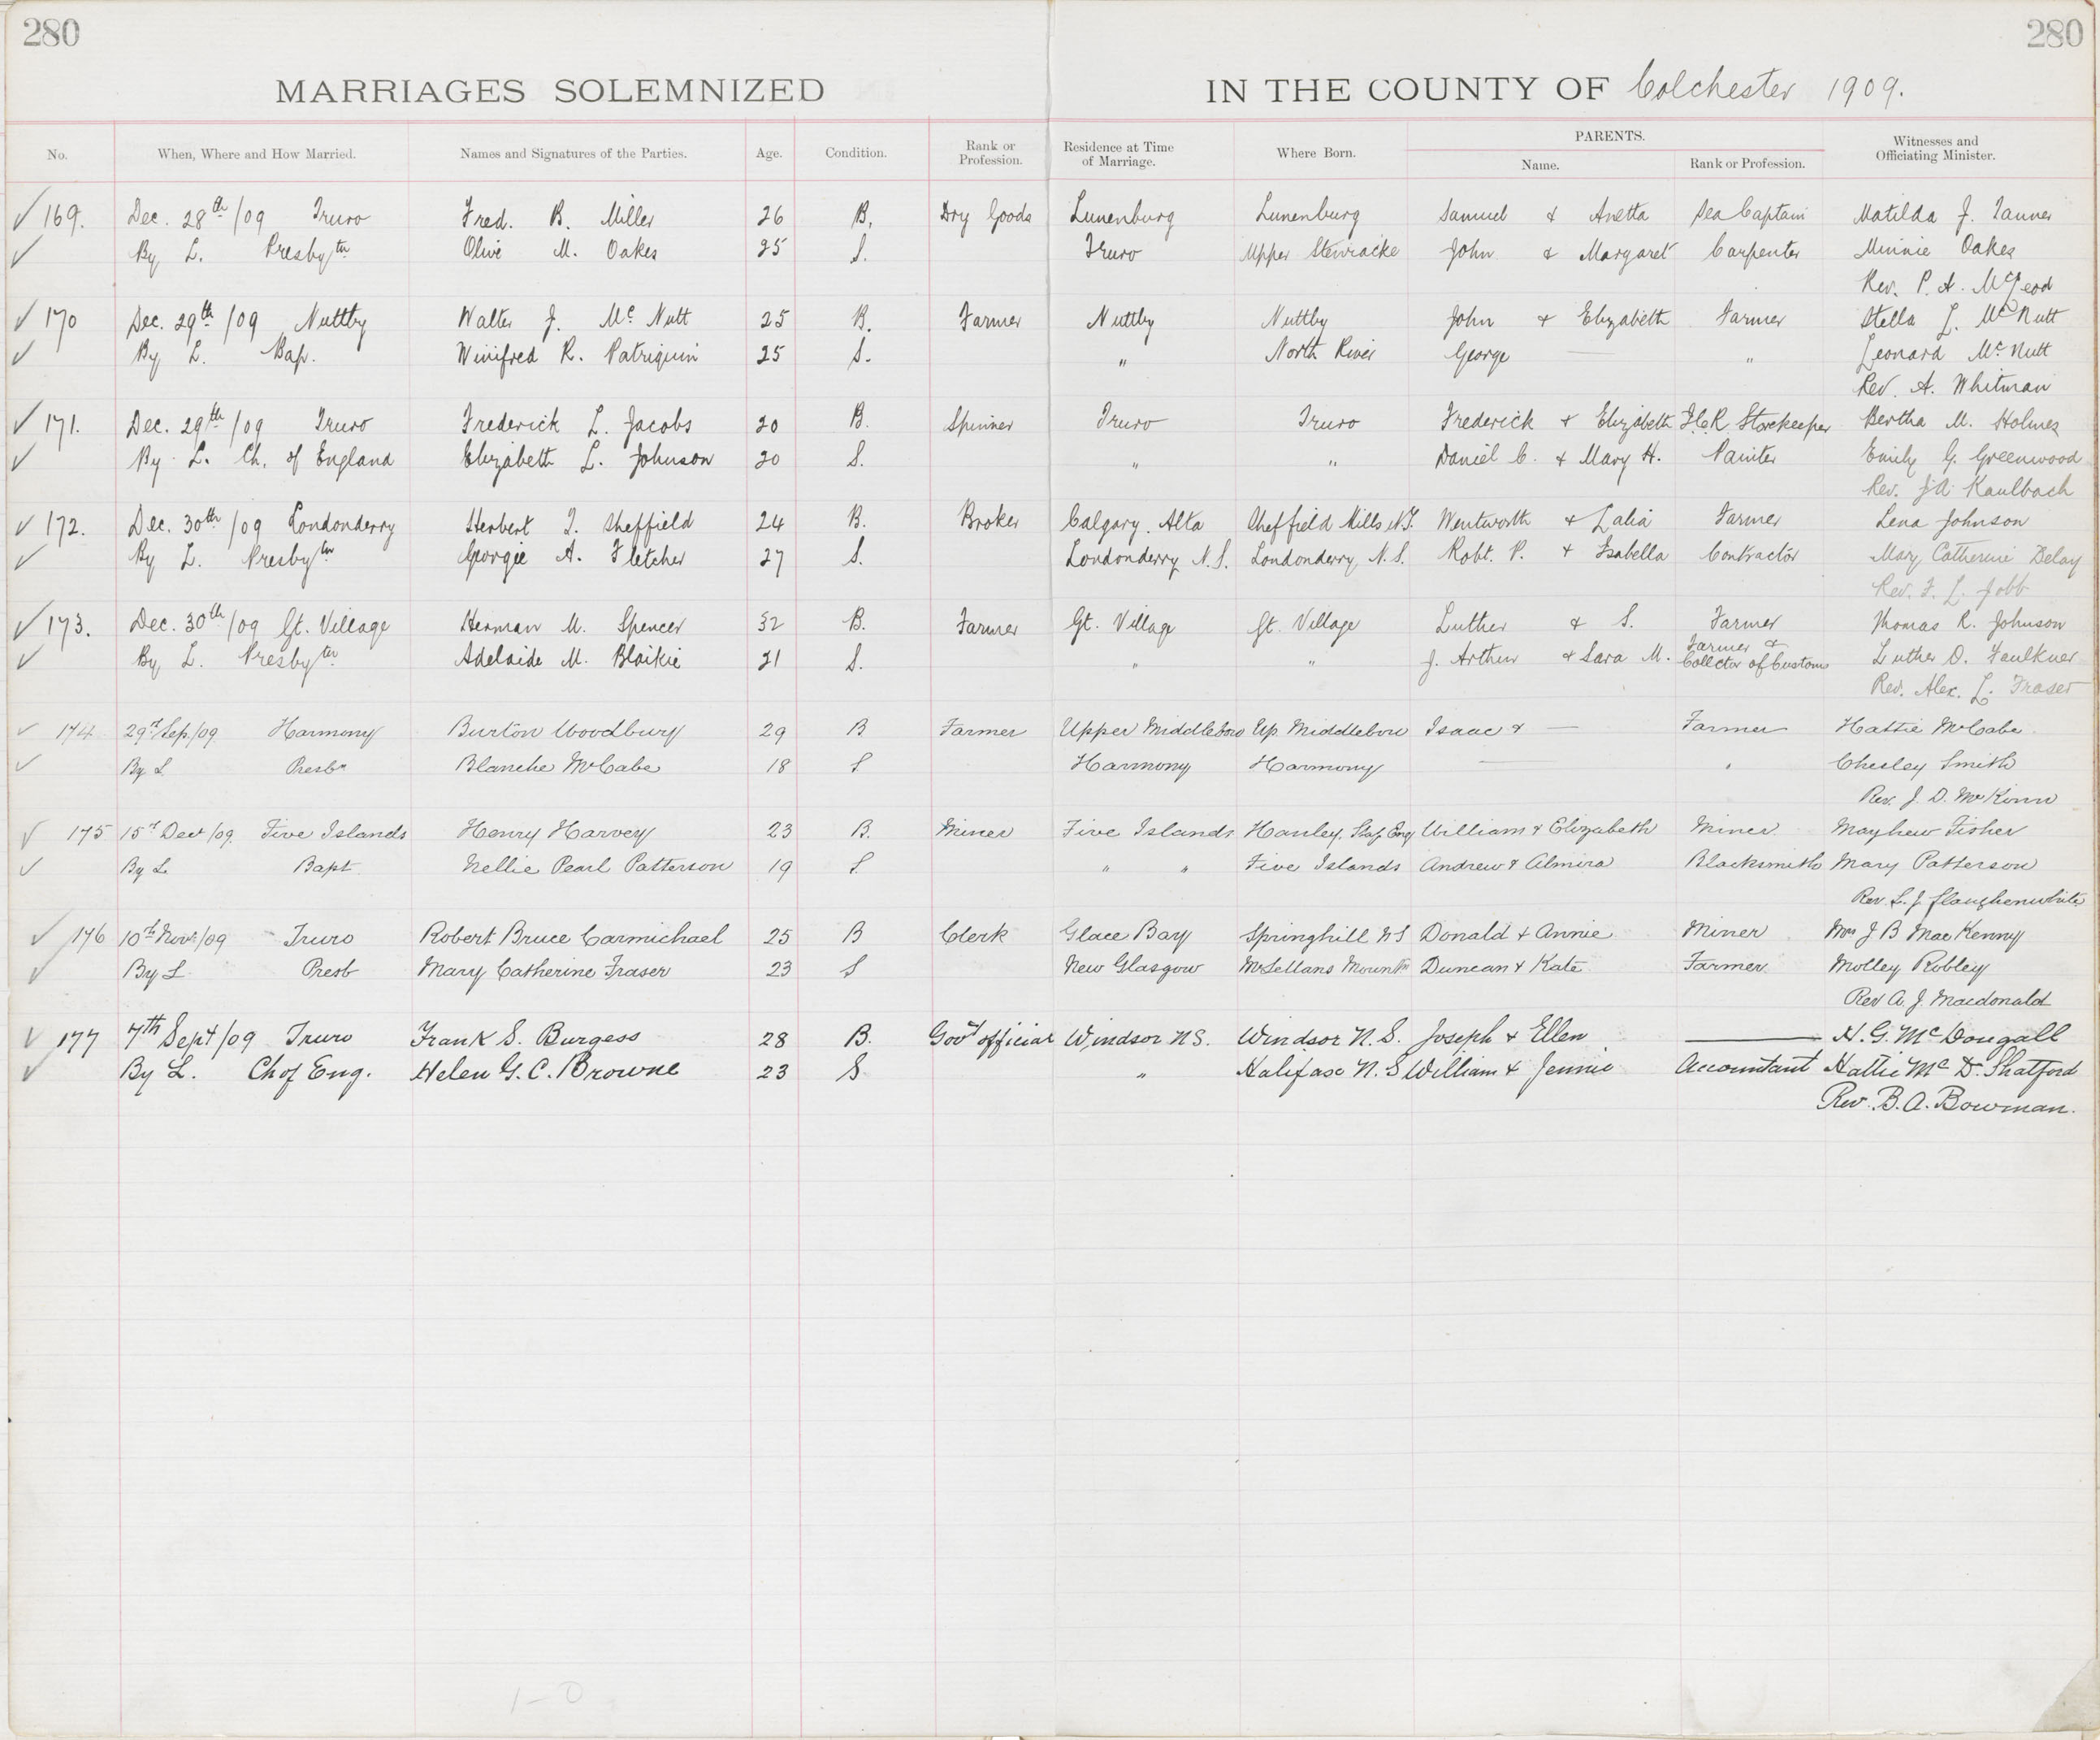 280 280
MARRIAGES SOLEMNIZED IN THE COUNTY OF Colchester 1909.
No. When, Where and How Married. Names and Signatures of the Parties. Age. Condition. Rank or Profession. Residence at Time of Marriage. Where Born. PARENTS. Name. Rank or Profession. Witnesses and Officiating Minister.
✓ 169. Dec. 28th /09 Truro Fred. B. Miller 26 B. Dry Goods Lunenburg Lunenburg Samuel & Anetta Sea Captain Matilda J. Tanner
✓ By L. Presbytn Olive M. Oakes 25 S. Truro Upper Stewiacke John & Margaret Carpenter Minnie Oakes
Rev. P. A. McLeod
✓ 170 Dec. 29th /09 Nuttby Walter J. Mc Nutt 25 B. Farmer Nuttby Nuttby John & Elizabeth Farmer Stella L. McNutt
✓ By L. Bap. Winifred R. Patriquin 25 S. " North River George — " Leonard McNutt
Rev. A. Whitman
✓ 171. Dec. 29th /09 Truro Frederick L. Jacobs 20 B. Spinner Truro Truro Frederick & Elizabeth I.C.R Storekeeper Bertha M. Holmes
✓ By L. Ch. of England Elizabeth L. Johnson 20 S. " " Daniel C. & Mary H. Painter Emily G. Greenwood
Rev. J.A. Kaulbach
✓ 172. Dec. 30th /09 Londonderry Herbert T. Sheffield 24 B. Broker Calgary. Alta Sheffield Mills N.S. Wentworth & Lalia Farmer Lena Johnson
✓ By L. Presbytn Georgie A. Fletcher 27 S. Londonderry N.S. Londonderry, N.S. Robt. P. & Isabella Contractor Mary Catherine Delay
Rev. F. L. Jobb
✓ 173. Dec. 30th /09 Gt. Village Herman M. Spencer 32 B. Farmer Gt. Village Gt. Village Luther & S. Farmer Thomas R. Johnson
✓ By L. Presbyter Adelaide M. Blaikie 21 S. " " J. Arthur & Sara M. Farmer & Collector of Customs Luther D. Faulkner
Rev. Alex. L. Fraser
✓ 174 29th Sep/09 Harmony Burton Woodbury 29 B Farmer Upper Middleboro Up. Middleboro Isaac & — Farmer Hattie McCabe
✓ By L Presbn Blanche McCabe 18 S Harmony Harmony — " Chesley Smith
Rev. J. D. McKinn
✓ 175 15th Decr /09. Five Islands Henry Harvey 23 B. Miner Five Islands Hanley. Staf. Eng William & Elizabeth Miner Mayhew Fisher
✓ By L Bapt. Nellie Pearl Patterson 19 S " " Five Islands Andrew & Almira Blacksmith Mary Patterson
Rev. L. J. Slaughenwhite
✓ 176 10th Novr /09 Truro Robert Bruce Carmichael 25 B Clerk Glace Bay Springhill NS Donald & Annie Miner Mrs J B MacKenny
✓ By L Presb Mary Catherine Fraser 23 S New Glasgow McLellans Mountn Duncan & Kate Farmer Molley Robley
Rev A. J. Macdonald
✓ 177 7th Sept /09 Truro Frank S. Burgess 28 B. Govt official Windsor NS. Windsor N.S. Joseph & Ellen — H. G. McDougall
✓ By L. Ch of Eng. Helen G. C. Browne 23 S " Halifax N.S William & Jennie Accountant Hattie Mc D. Shatford
Rev. B. A. Bowman.
1-0